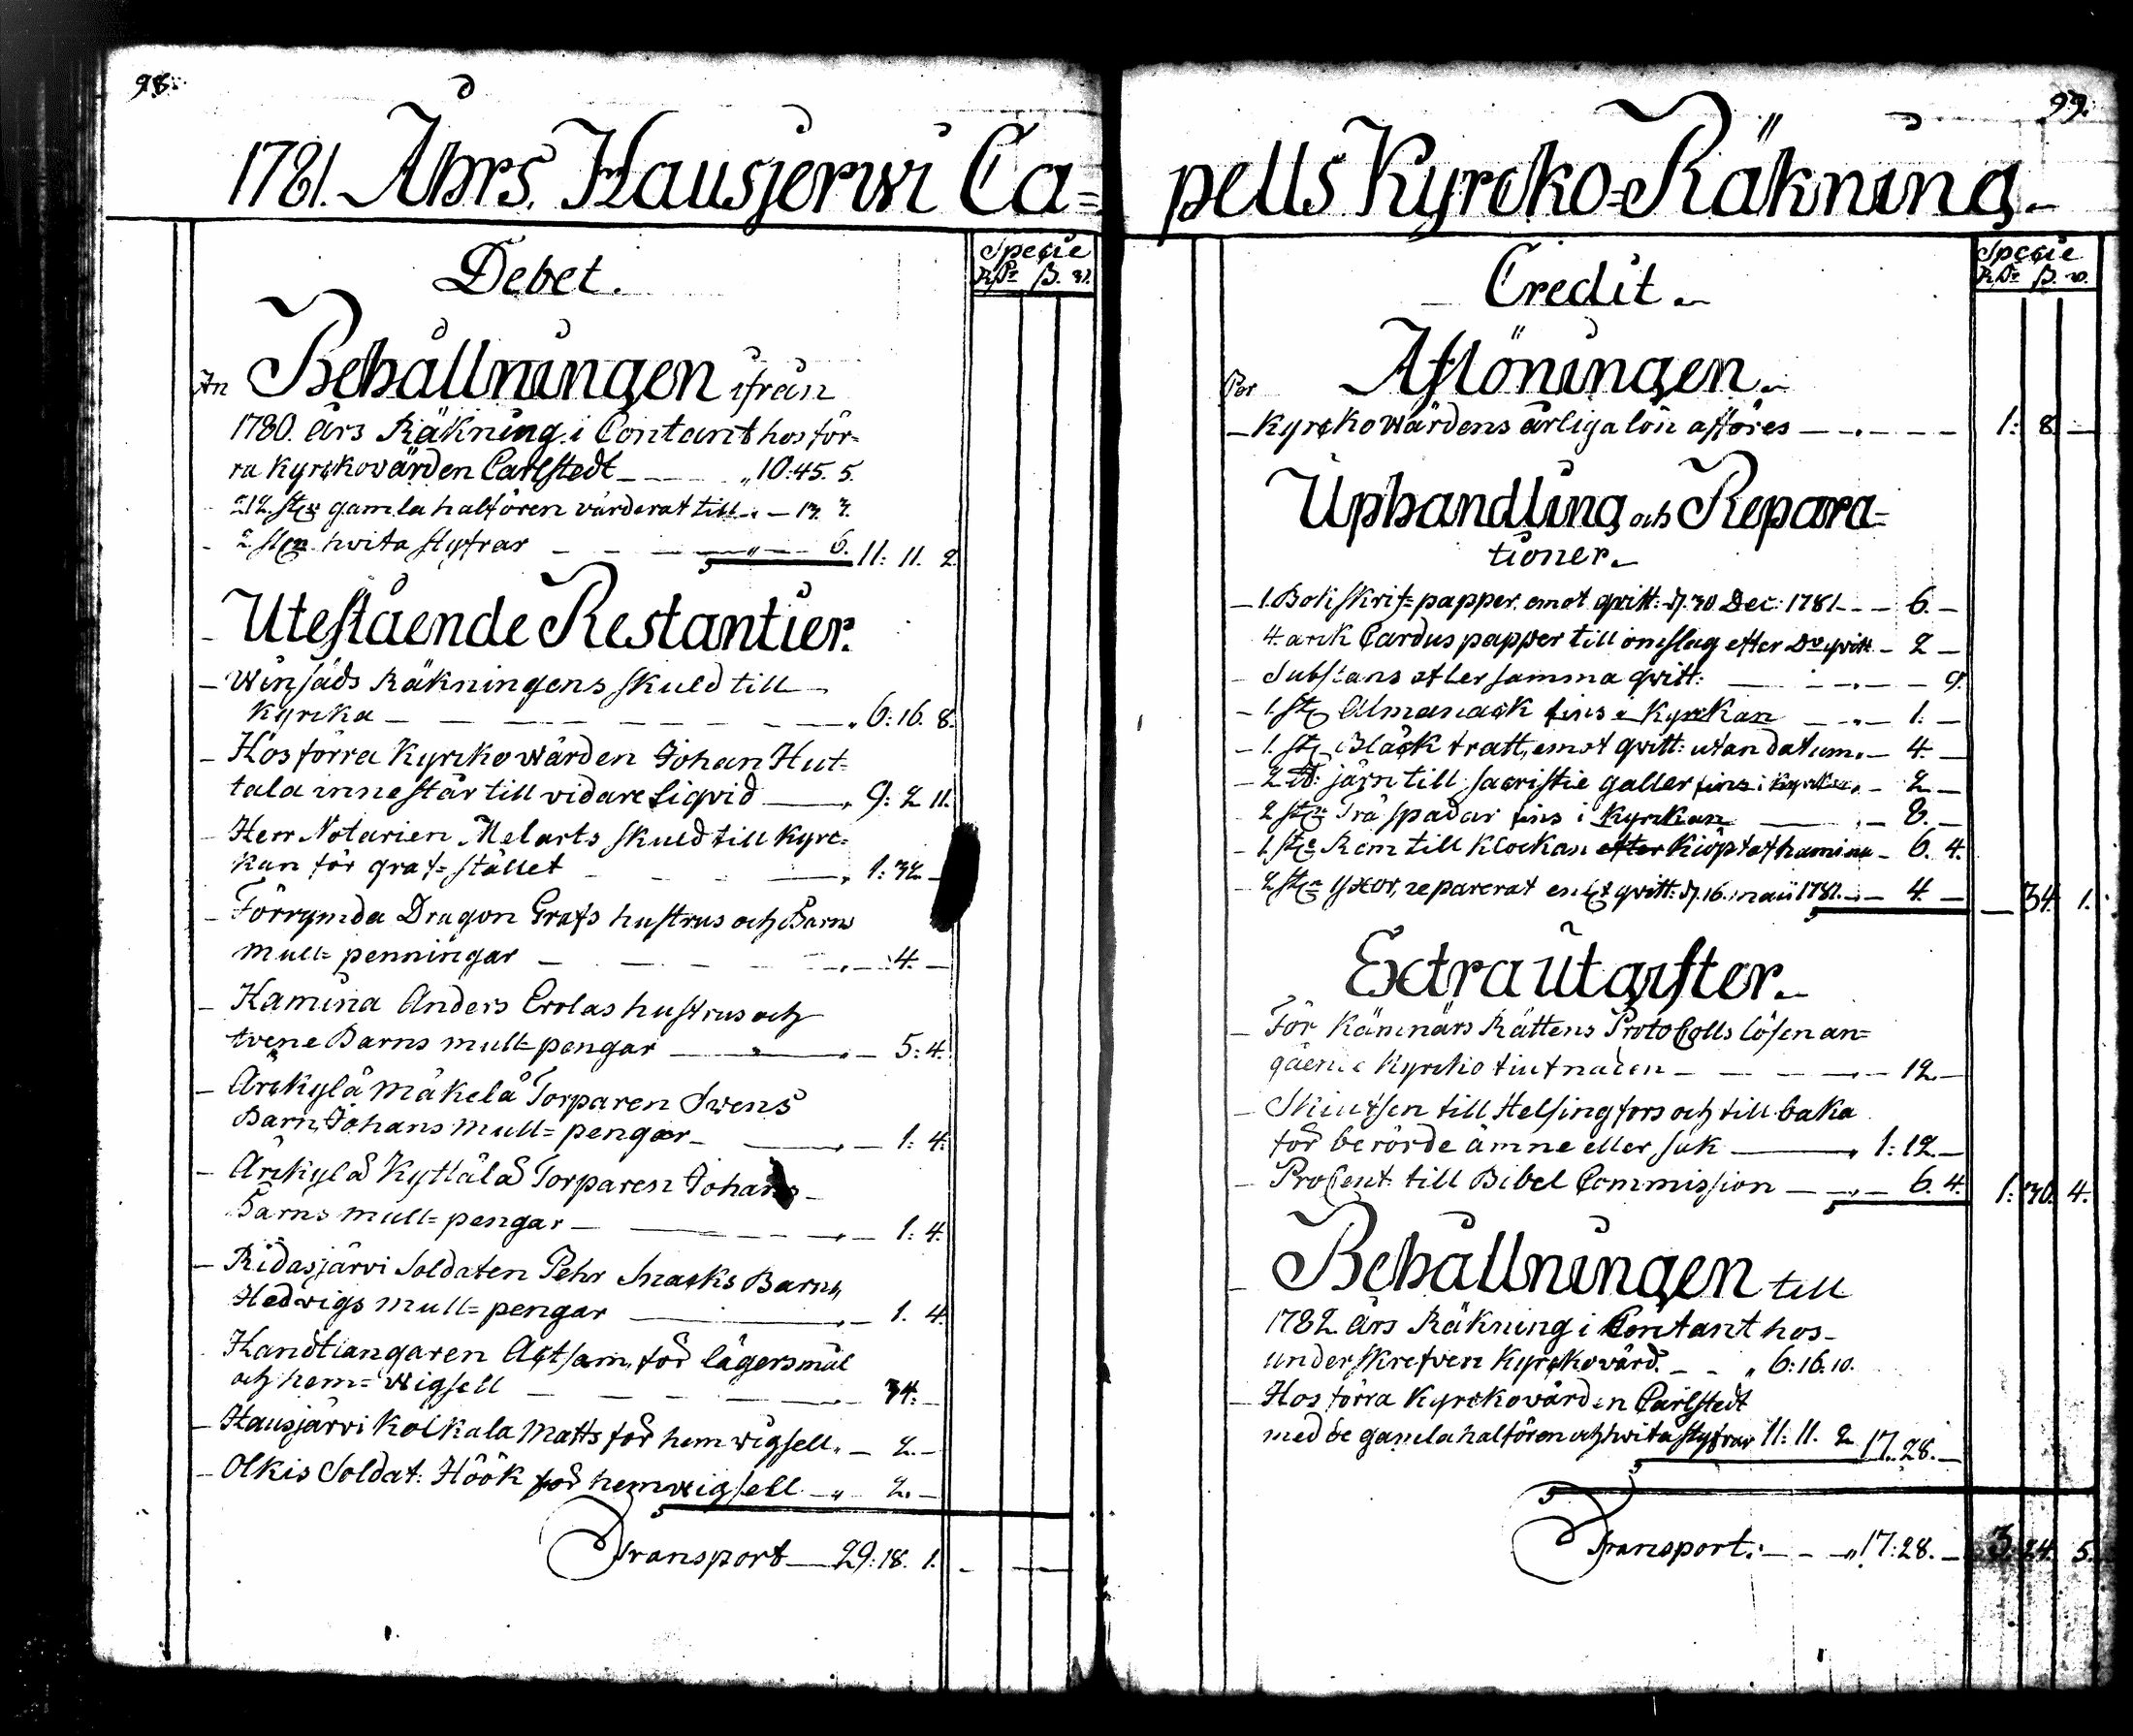 98.
1781. Åhrs. Hausjerwi Ca=
Debet.
Specie
An Behållningen ifrån
1780. års Räkning i Contant hos för=
ra Kyrckovärden Carlstedt — — „10:45. 5.
212. st. gamla halfören värderat till — 13. 3.
2 st. hwita styfrar — — — 6. 11: 11. 2.
Utestående Restantier.
— Winsäds Räkningens skuld till
Kyrcka — — — — — „ 6: 16. 8.
— Hos förra Kyrckowärden Johan Hut=
tala innestår till vidare Liqvid — „ 9: 2 11.
— Herr Notarien Melarts skuld till Kyrc=
kan för graf=stället — — „ 1: 32 —
— Förrymda Dragon Grefs hustrus och Barns
mull=penningar — — — 4. —
— Kamina Anders Erolas hustrus och
tvene Barns mull=pengar — — 5: 4.
— Årckylä Mäkelä Torparen Swens
Barn Johans mull=pengar — — 1: 4.
— Årckylä Kyttälä Torparen Johans
Barns mull=pengar — — — 1: 4.
— Ridasjärvi Soldaten Pehr Snacks Barns
Hedwigs mull=pengar — — 1. 4.
Handtlangaren Actsam, för lägersmål
och hem=wigsell — — — 34. —
— Hausjärvi Kolkala Matts för hemwigsell „ — 2. —
— Olkis Soldat: Höök för hemwigsell — „ 2. —
Transport — 29: 18. 1.
99.
pells Kyrcko=Räkning.
Credit.
Specie
Per Aflöningen.
— Kyrckowärdens årliga lön afföres — — — 1: 8. —
Uphandling och Repara=
tioner.
— 1. Bok skrif=papper. emot qvitt: d. 30 Dec: 1781 — — 6. —
4. arck Cardus papper till omslag efter Do qvitt — 2 —
— Substans efter samma qvitt: — — — 9.
— 1. st. Almanack fins i Kyrckan — „ — 1. —
— 1. st. Bläck tratt, emot qvitt: utan datum. — 4. —
— 2 ℔: järn till sacristie galler fins i Kyrckan. — 2 —
2 st. Trä spadar fins i Kyrckan — — 8. —
— 1. st. Rem till Klockan efter Kiöpt af hamina — 6. 4.
— 2 st. yxor, reparerat enligt qvitt: d. 16. maii 1781. — 4. — — 34. 1.
Extra utgifter.
— För Kämnärs Rättens Protocolls lösen an=
gåendе Kyrcko tiufnaden — — — 12 —
— Skiutsen till Helsingfors och till baka
för berörde ämne eller sak — — 1: 12. —
— ProCent till Bibel Commission — „ — 6. 4. 1: 30. 4.
— Behållningen till
1782. års Räkning i Contant hos
underskrefven Kyrckovärd. — — „ 6: 16. 10.
— Hos förra Kyrckovärden Carlstedt
med de gamla halfören och hwita styfrar 11: 11. 2 17: 28. —
Transport: — — „ 17: 28. — 3: 24. 5.